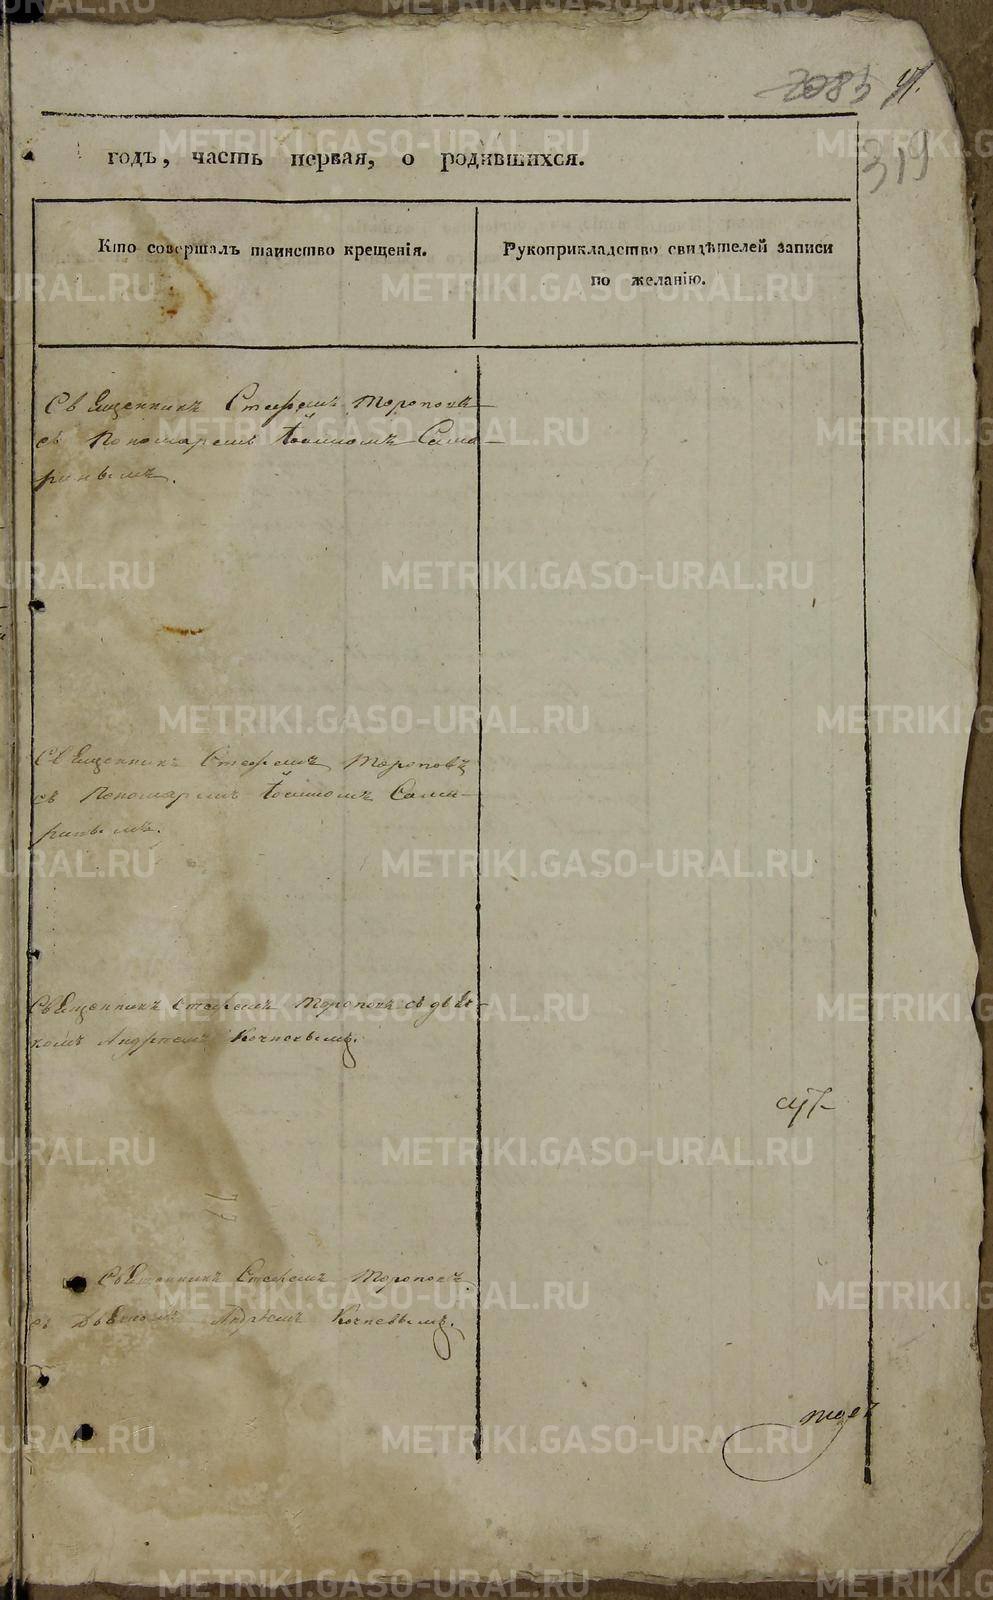 2085 41.
319
годъ, часть первая, о родившихся.
Кто совершалъ таинство крещенія.
Рукоприкладство свидѣтелей записи
по желанію.
Священникъ Стефанъ Тороповъ
съ Пономаремъ Іоанномъ Сама-
ринымъ.
Священникъ Стефанъ Тороповъ
съ Пономаремъ Іоанномъ Сама-
ринымъ.
Священникъ Стефанъ Тороповъ съ дьяч-
комъ Андреемъ Кочневымъ.
Священникъ Стефанъ Тороповъ
съ Дьячкомъ Андреемъ Кочневымъ.
METRIKI.GASO-URAL.RU